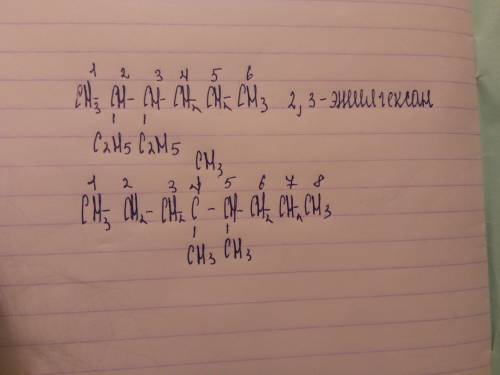 1 2 3 4 5 6
CH3-CH-CH-CH2-CH2-CH3 2,3-этилгексан
C2H5 C2H5
CH3
1 2 3 4 5 6 7 8
CH3-CH2-CH2 C-CH-CH2-CH2-CH3
CH3 CH3